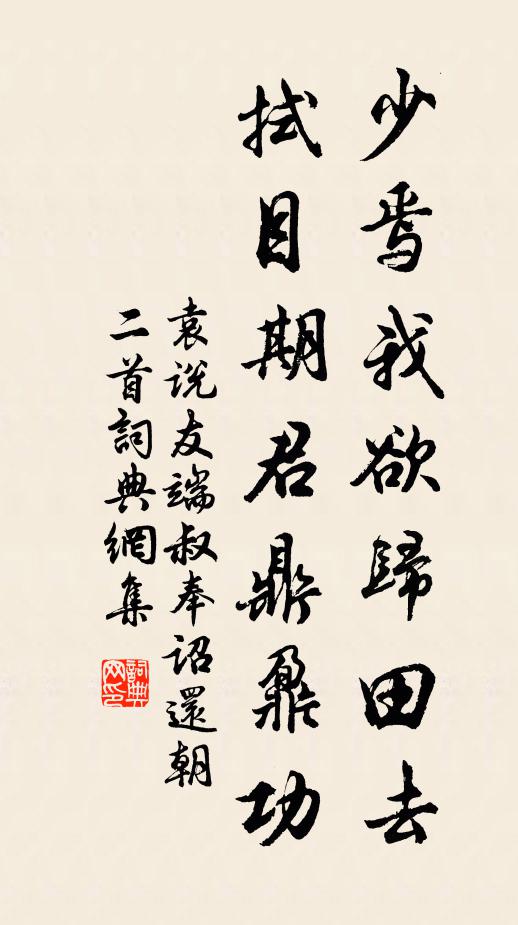 少焉我欲歸田去
拭目期君鼎鼐功
袁説友端叔奉詔還朝
二首詞典網集
詞典
网印